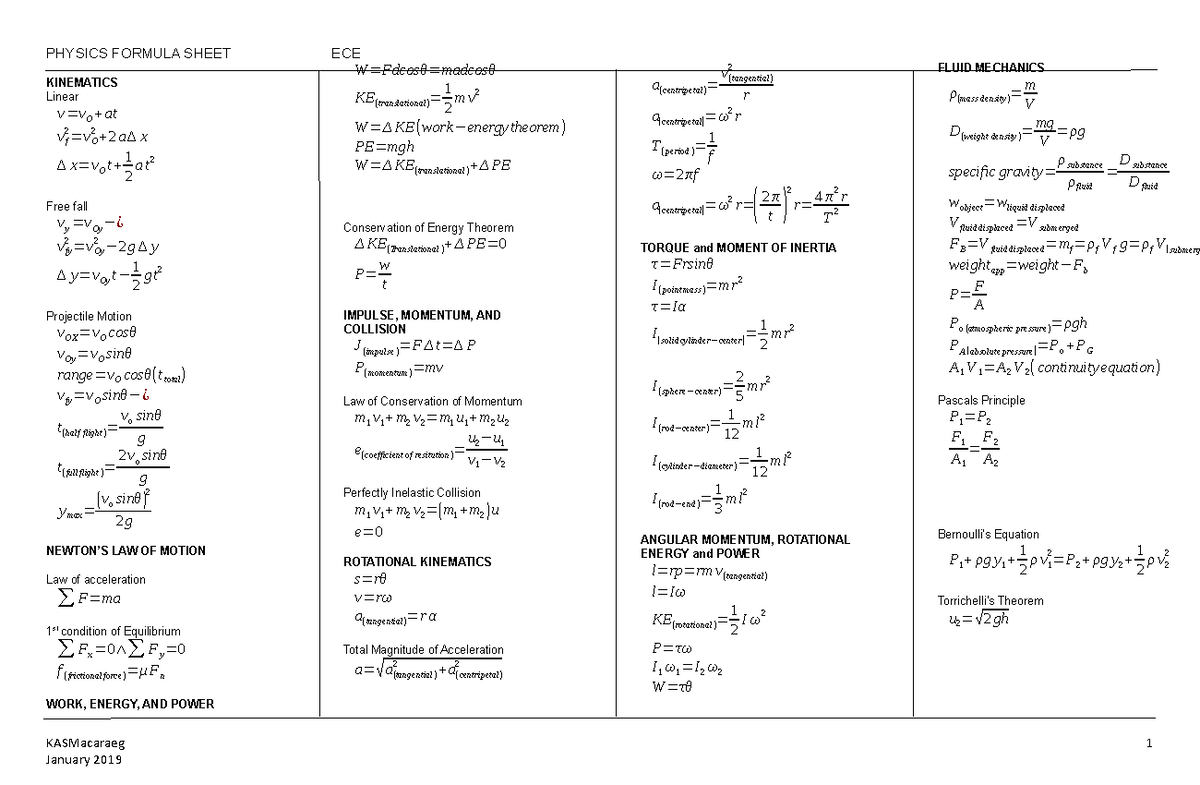 PHYSICS FORMULA SHEET ECE
KINEMATICS
Linear
v=v_O+at
v_f^2=v_O^2+2aΔx
Δx=v_O t+\frac{1}{2}at^2
Free fall
v_y=v_{Oy}−¿
v_{fy}^2=v_{Oy}^2−2gΔy
Δy=v_{Oy}t−\frac{1}{2}gt^2
Projectile Motion
v_{OX}=v_O cosθ
v_{Oy}=v_O sinθ
range=v_O cosθ(t_{total})
v_{fy}=v_O sinθ−¿
t_{(half flight)}=\frac{v_o sinθ}{g}
t_{(full flight)}=\frac{2v_o sinθ}{g}
y_{max}=\frac{(v_o sinθ)^2}{2g}
NEWTON'S LAW OF MOTION
Law of acceleration
∑F=ma
1st condition of Equilibrium
∑F_x=0∧∑F_y=0
f_{(frictional force)}=μF_n
WORK, ENERGY, AND POWER
W=Fdcosθ=madcosθ
KE_{(translational)}=\frac{1}{2}mv^2
W=ΔKE(work−energy theorem)
PE=mgh
W=ΔKE_{(translational)}+ΔPE
Conservation of Energy Theorem
ΔKE_{(Translational)}+ΔPE=0
P=\frac{w}{t}
IMPULSE, MOMENTUM, AND
COLLISION
J_{(impulse)}=FΔt=ΔP
P_{(momentum)}=mv
Law of Conservation of Momentum
m_1v_1+m_2v_2=m_1u_1+m_2u_2
e_{(coefficient of resitution)}=\frac{u_2−u_1}{v_1−v_2}
Perfectly Inelastic Collision
m_1v_1+m_2v_2=(m_1+m_2)u
e=0
ROTATIONAL KINEMATICS
s=rθ
v=rω
a_{(tangential)}=rα
Total Magnitude of Acceleration
a=\sqrt{a_{(tangential)}^2+a_{(centripetal)}^2}
a_{(centripetal)}=\frac{v_{(tangential)}^2}{r}
a_{(centripetal)}=ω^2r
T_{(period)}=\frac{1}{f}
ω=2πf
a_{(centripetal)}=ω^2r=(\frac{2π}{t})^2r=\frac{4π^2r}{T^2}
TORQUE and MOMENT OF INERTIA
τ=Frsinθ
I_{(pointmass)}=mr^2
τ=Iα
I_{(solidcylinder−center)}=\frac{1}{2}mr^2
I_{(sphere−center)}=\frac{2}{5}mr^2
I_{(rod−center)}=\frac{1}{12}ml^2
I_{(cylinder−diameter)}=\frac{1}{12}ml^2
I_{(rod−end)}=\frac{1}{3}ml^2
ANGULAR MOMENTUM, ROTATIONAL
ENERGY and POWER
l=rp=rmv_{(tangential)}
l=Iω
KE_{(rotational)}=\frac{1}{2}Iω^2
P=τω
I_1ω_1=I_2ω_2
W=τθ
FLUID MECHANICS
ρ_{(mass density)}=\frac{m}{V}
D_{(weight density)}=\frac{mg}{V}=ρg
specific gravity=\frac{ρ_{substance}}{ρ_{fluid}}=\frac{D_{substance}}{D_{fluid}}
w_{object}=w_{liquid displaced}
V_{fluid displaced}=V_{submerged}
F_B=V_{fluid displaced}=m_f=ρ_fV_fg=ρ_fV_{(submerg}
weight_{app}=weight−F_b
P=\frac{F}{A}
P_{o(atmospheric pressure)}=ρgh
P_{A(absolute pressure)}=P_o+P_G
A_1V_1=A_2V_2(continuity equation)
Pascals Principle
P_1=P_2
\frac{F_1}{A_1}=\frac{F_2}{A_2}
Bernoulli's Equation
P_1+ρgy_1+\frac{1}{2}ρv_1^2=P_2+ρgy_2+\frac{1}{2}ρv_2^2
Torrichelli's Theorem
u_2=\sqrt{2gh}
KASMacaraeg 1
January 2019